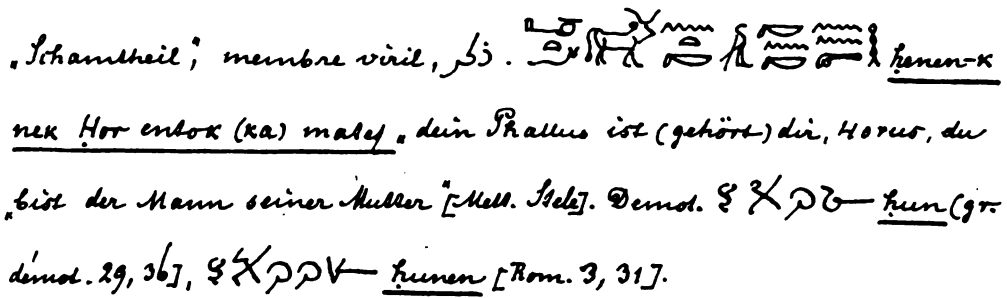 „Schamtheil“, membre viril, ذكر. ḥenen-k
nek Ḥor entok (ka) matef „dein Phallus ist (gehört) dir, Horus, du
„bist der Mann seiner Mutter“ [Mett. Stele]. Demot. ḥun (gr.
démot. 29, 36], ḥunen [Rom. 3, 31].